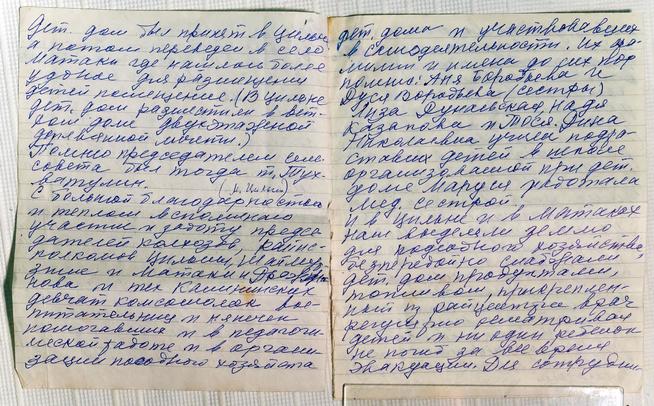 дет. дом был принят в Цильне
а потом переведен в село
Матаки где нашлось более
удобное для размещения
детей помещение. (В Цильне
дет. дом разместили в вет-
хом доме двухэтажной
деревянной мечети.)
Помню председателем сель-
совета был тогда т. Тух-
ватулин. (н. Цильна)
С большой благодарностью
и теплом вспоминаю
участие и заботу предсе-
дателей колхозов, райис-
полкомов Цильны,
и Матаки и
и тех
девчат комсомолок вос-
питательниц и нянечек
помогавших и в педагоги-
ческой работе и в органи
зации подсобного хозяйства
дет. дома и участвовавших
в самодеятельности. Их фа-
милии и имена до сих пор
помню: Аня Воробьева и
Дуся Воробьева (сестры)
Лиза Дунаевская, Надя
Казакова и Тося. Дина
Николаевна учила подро-
ставших детей в школе
организованной при дет.
доме Маруся работала
мед. сестрой.
И в Цильне и в Матаках
нам выделяли землю
для подсобного хозяйства,
бесперебойно снабжали
дет. дом продуктами,
топливом, прикреплен-
ный из райцентра врач
регулярно осматривал
детей и ни один ребенок
не погиб за все время
эвакуации. Для сотрудни-